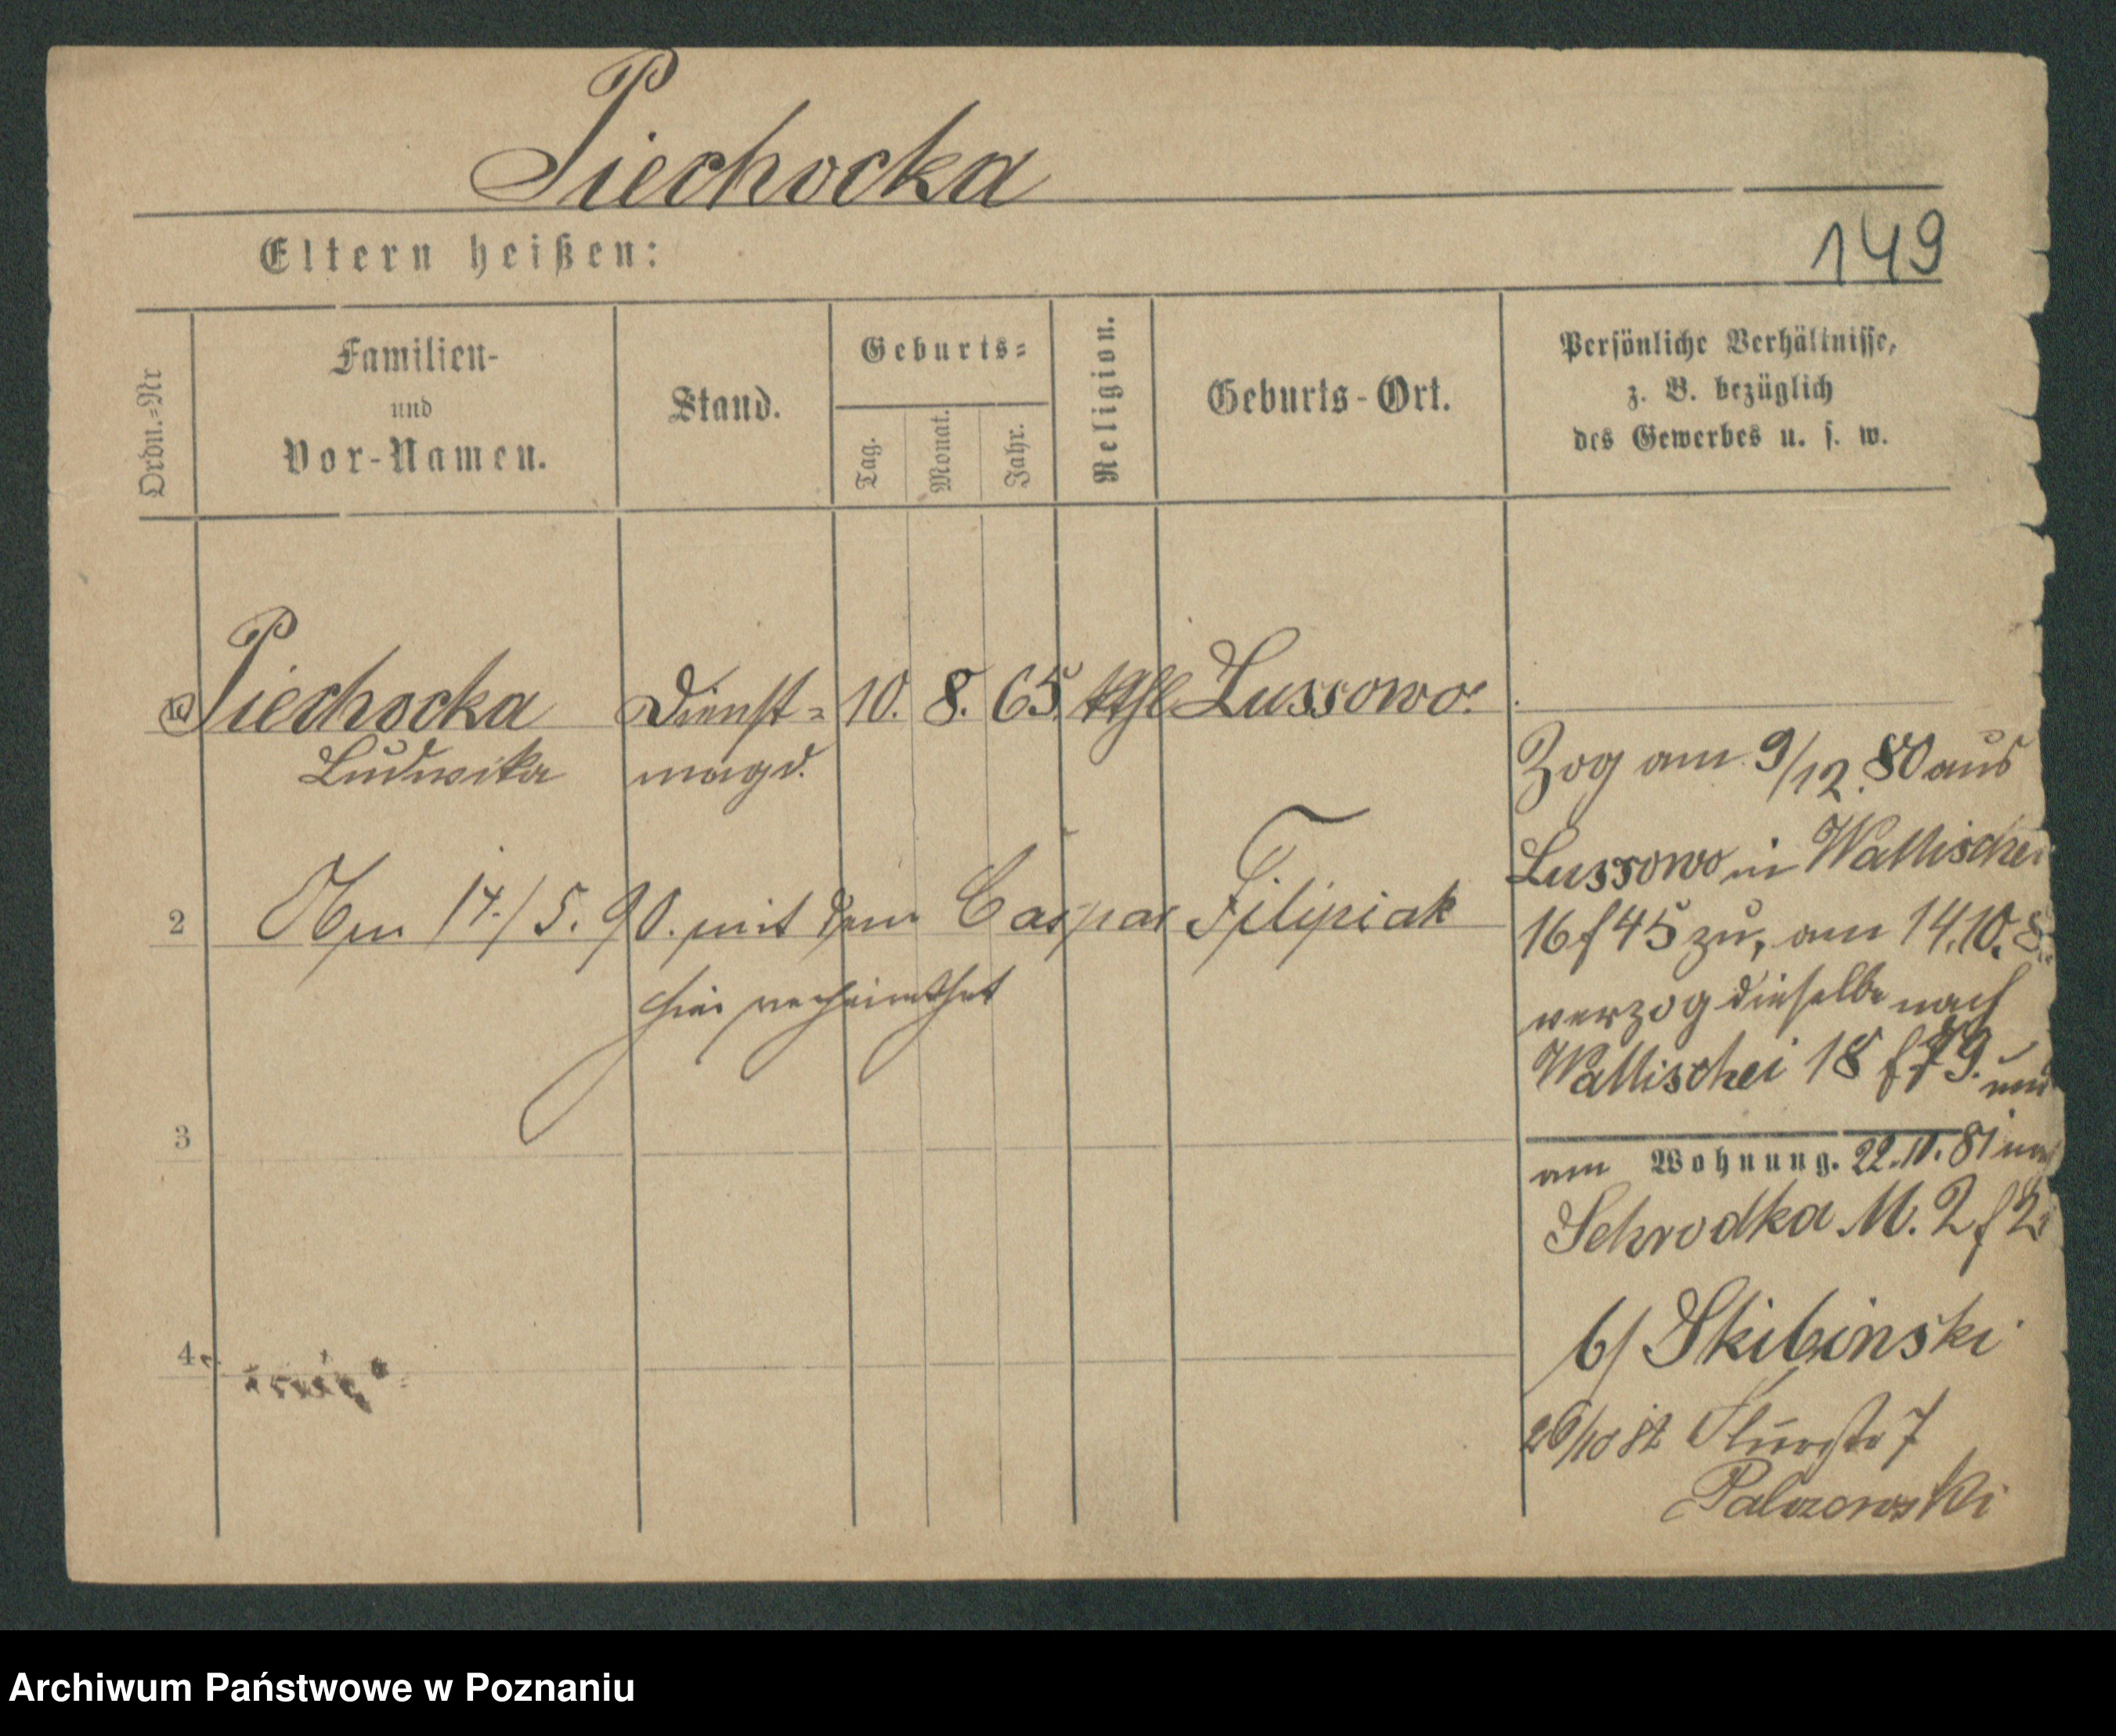 Piechocka
149
Eltern heißen:
Ordn.=Nr
Familien-
und
Vor-Namen.
Stand.
Geburts=
Tag.
Monat.
Jahr.
Religion.
Geburts-Ort.
Persönliche Verhältnisse,
z. B. bezüglich
des Gewerbes u. s. w.
Piechocka Dienst= 10. 8. 65. kthl Lussowo.
Ludwika magd.
Zog am 9/12. 80 aus
Lussowo in Wallischei
16 f 45 zu, am 14.10.
verzog dieselbe nach
Wallischei 18 f 79. und
2 Am 14./5. 90. mit dem Caspar Filipiak
hier verheirathet
3
am Wohnung. 22.11.81
Schrodka M. 2 f
b/ Skibinski
4
26/10 Flurstr 7
Archiwum Państwowe w Poznaniu